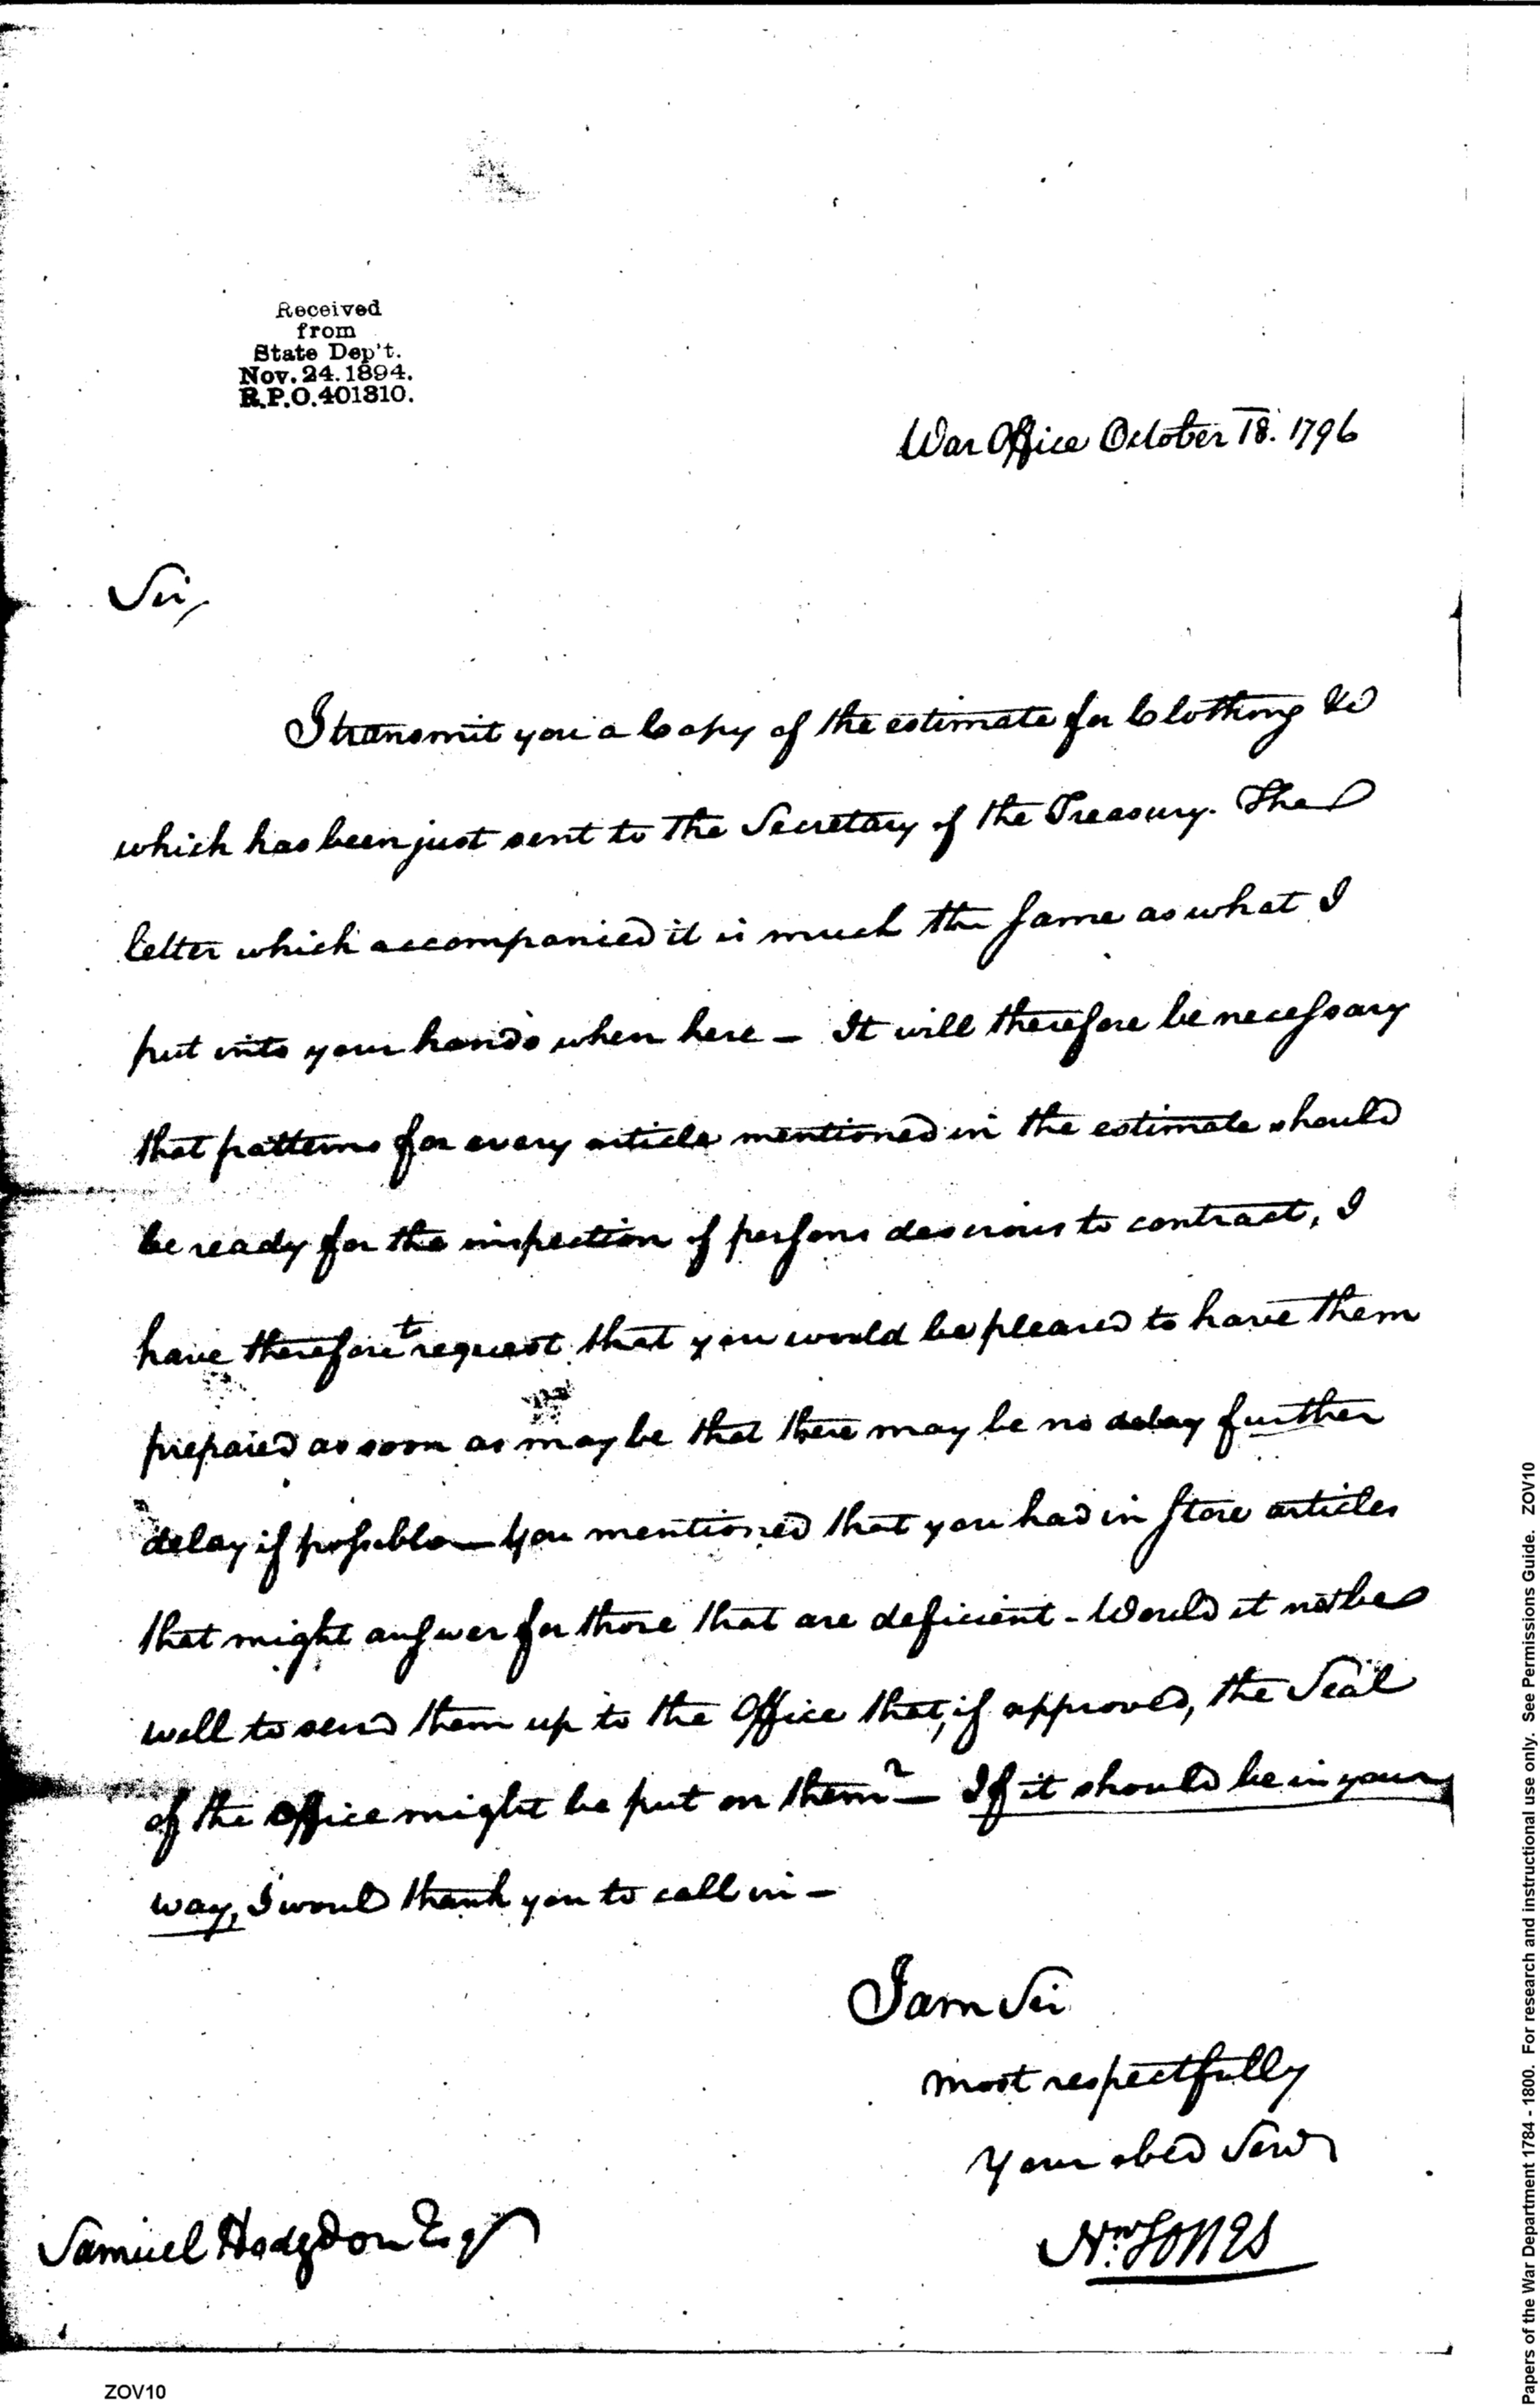 Received
from
State Dep't.
Nov. 24. 1894.
R.P.O. 401310.
War Office October 18. 1796
Sir,
I transmit you a Copy of the estimate for Clothing &c
which has been just sent to the Secretary of the Treasury. The
letter which accompanied it is much the same as what I
put into your hands when here – It will therefore be necessary
that patterns for every article mentioned in the estimate should
be ready for the inspection of persons desirous to contract, I
have therefore to request that you would be pleased to have them
prepared as soon as may be that there may be no delay further
delay if possible — You mentioned that you had in Store articles
that might answer for those that are deficient – Would it not be
well to send them up to the Office that, if approved, the Seal
of the Office might be put on them? – If it should be in your
way, I would thank you to call in –
I am Sir
most respectfully
Your obed Serv
Nm. Jones
Samuel Hodgdon Esqr
ZOV10
Papers of the War Department 1784 - 1800. For research and instructional use only. See Permissions Guide. ZOV10